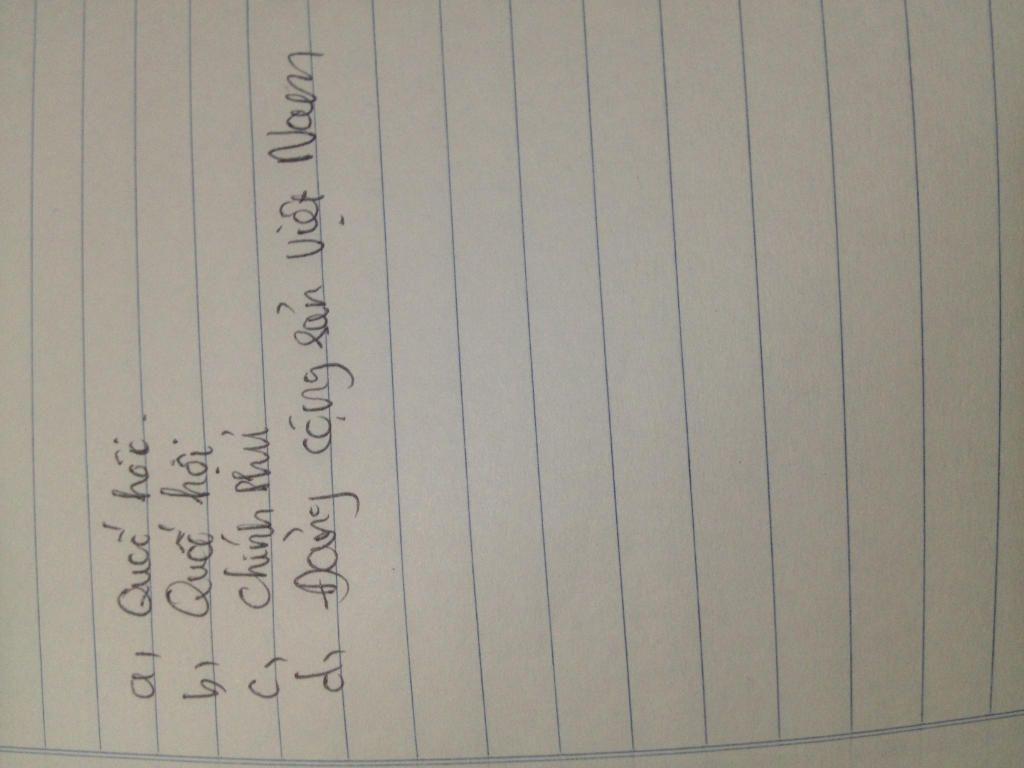 a, Quốc hội.
b, Quốc hội
c, Chính Phủ
d, Đảng cộng sản Việt Nam